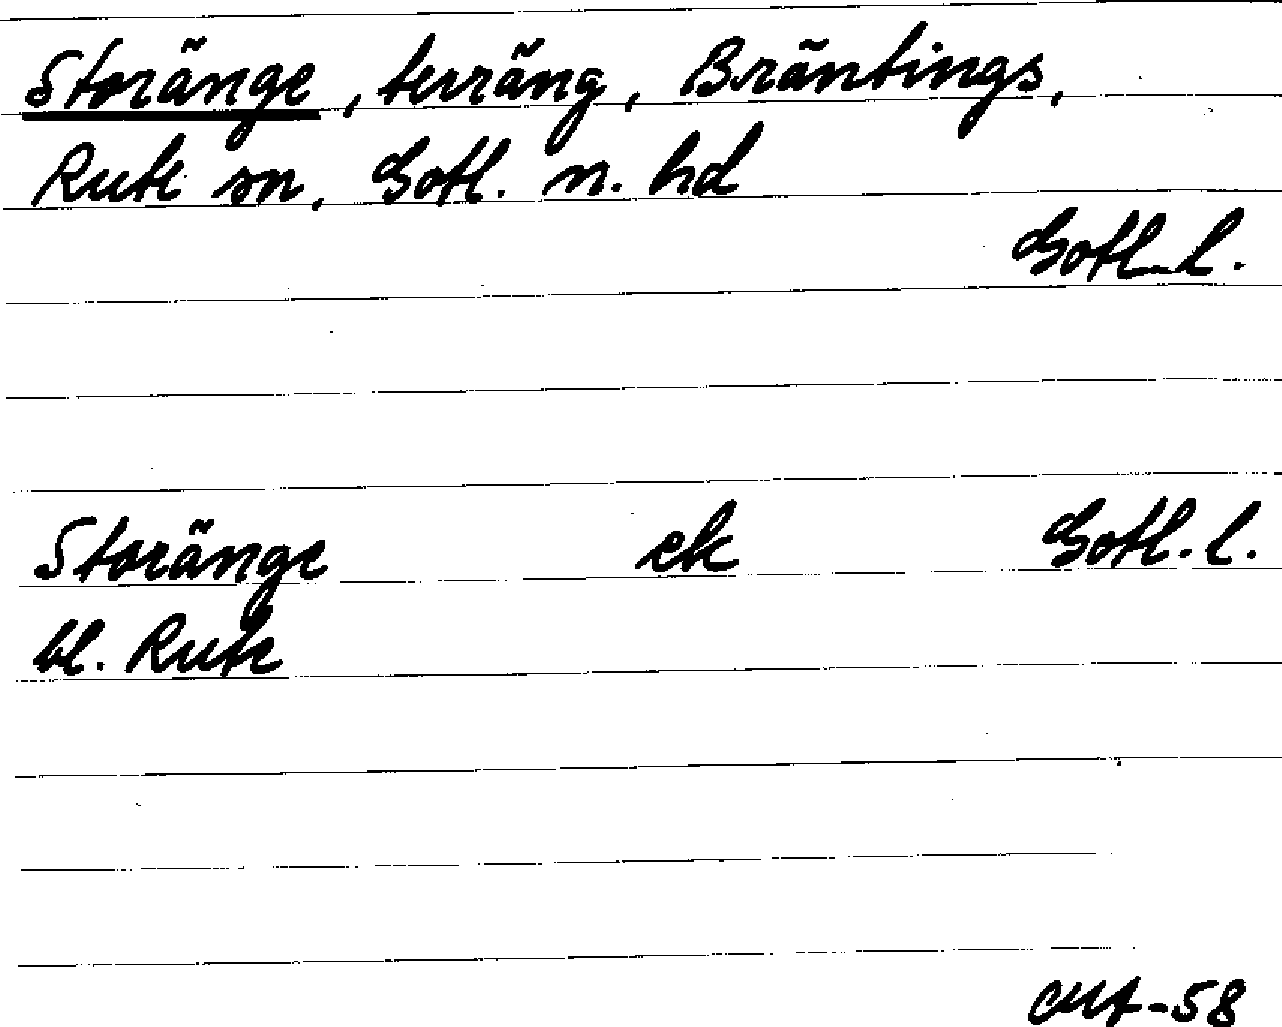 Storänge, terräng, Bräntings,
Rute sn, Gotl. n. hd
Gotl. l.
Storänge ek Gotl. l.
bl. Rute